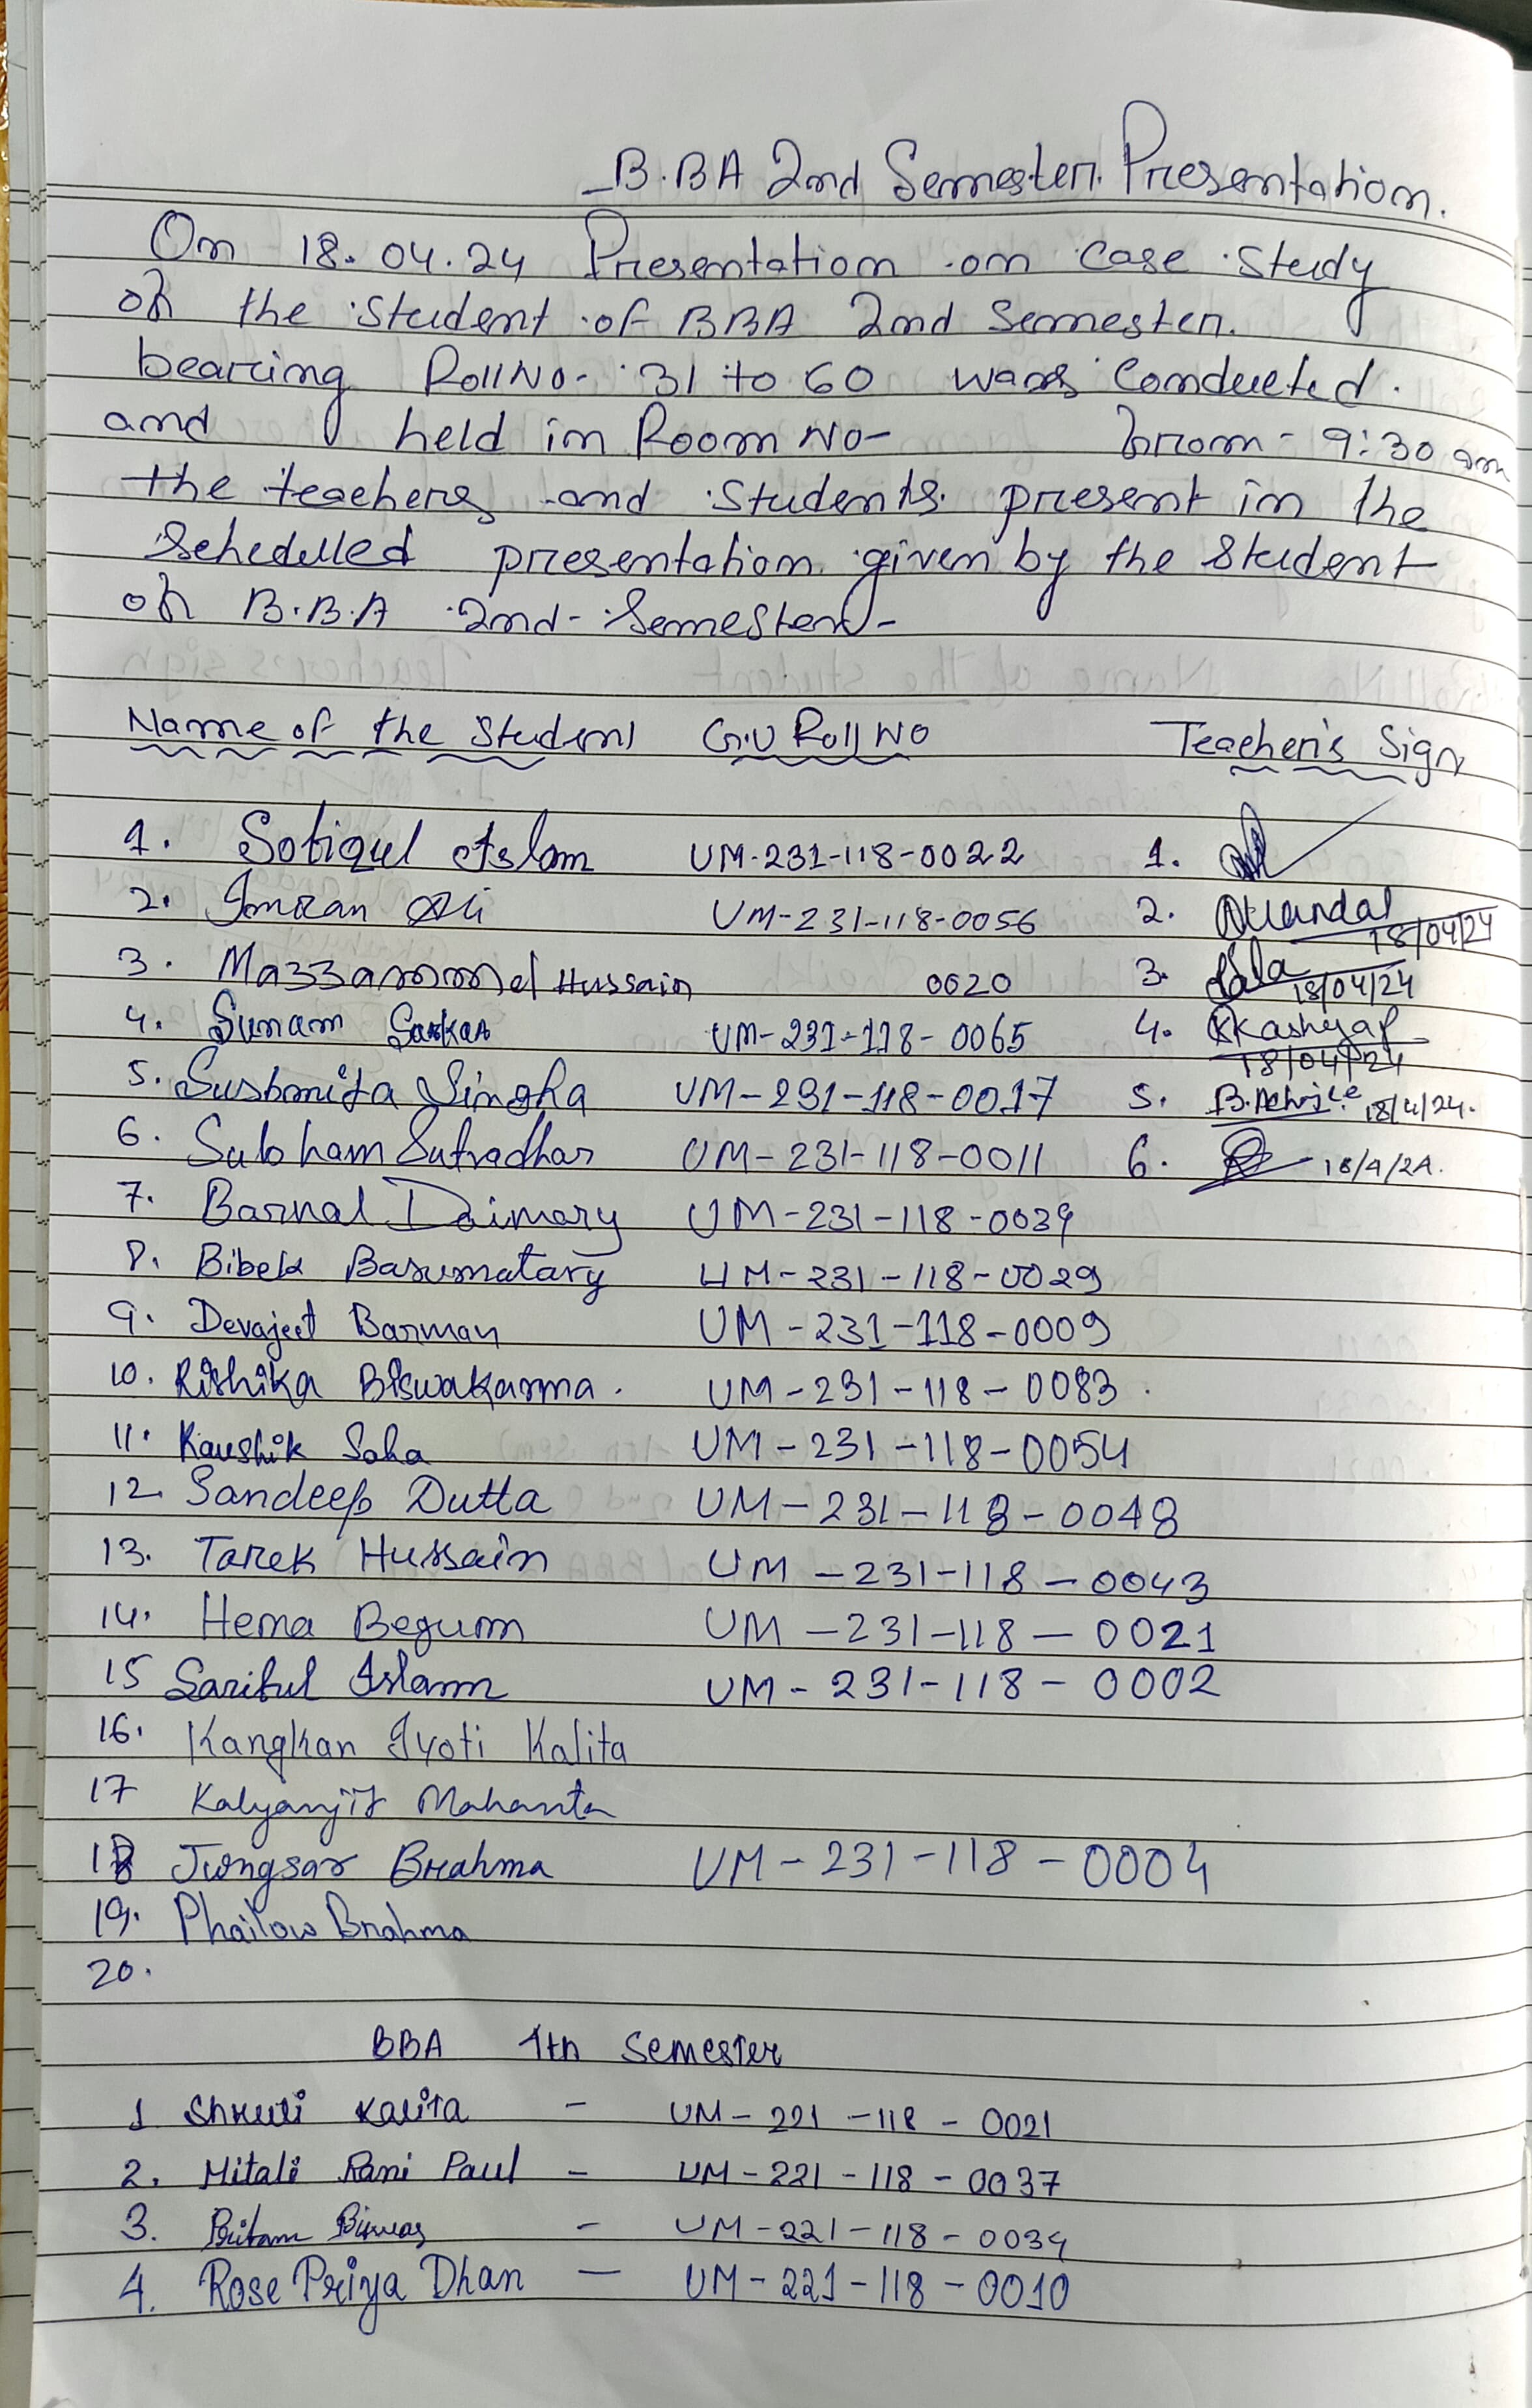 B.BA 2nd Semester Presentation.
On 18.04.24 Presentation on case study
of the student of BBA 2nd Semester.
bearing Roll No- 31 to 60 was conducted.
and held in Room No- from - 9:30 am
the teachers and students present in the
Schedulled presentation given by the student
of B.B.A 2nd- Semester-
Name of the Student G.U Roll No Teacher's Sign
1. Sofiqul Islam UM-231-118-0022 1.
2. Imran Ali UM-231-118-0056 2. Mandal 18/04/24
3. Mazzammel Hussain 0020 3. 18/04/24
4. Sunam Sarkar UM-231-118-0065 4. Kashyap 18/04/24
5. Sushmita Singha UM-231-118-0017 5. 18/4/24.
6. Subham Sutradhar UM-231-118-0011 6. 18/4/24.
7. Barnal Daimary UM-231-118-0039
8. Bibek Basumatary UM-231-118-0029
9. Devajeet Barman UM-231-118-0009
10. Rishika Biswakarma. UM-231-118-0083
11. Kaushik Saha UM-231-118-0054
12. Sandeep Dutta UM-231-118-0048
13. Tarek Hussain UM-231-118-0043
14. Hema Begum UM-231-118-0021
15 Sariful Islam UM-231-118-0002
16. Kangkan Jyoti Kalita
17 Kalyanjit Mahanta
18 Jwngsar Brahma UM-231-118-0004
19. Phailaw Brahma
20.
BBA 4th Semester
1 Shruti Kalita - UM-221-118-0021
2. Mitali Rani Paul - UM-221-118-0037
3. Pritam Biswas - UM-221-118-0034
4. Rose Priya Dhan - UM-221-118-0010